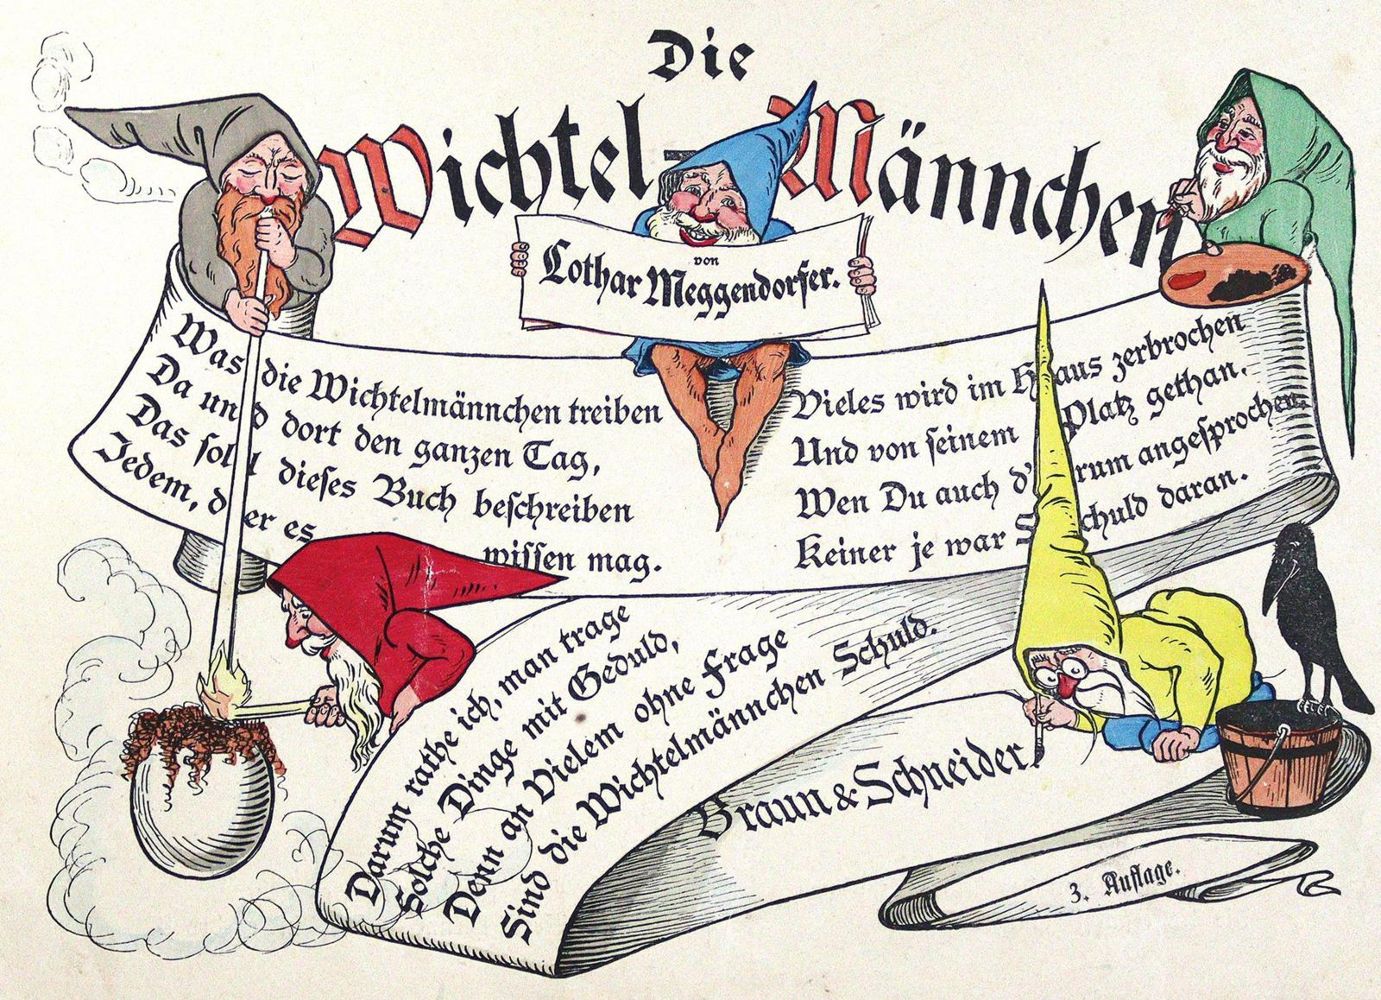 Die
Wichtel-Männchen
von
Lothar Meggendorfer.
Was die Wichtelmännchen treiben
Da und dort den ganzen Tag,
Das soll dieses Buch beschreiben
Jedem, der es wissen mag.
Vieles wird im Haus zerbrochen
Und von seinem Platz gethan.
Wen Du auch d'rum angesprochen
Keiner je war Schuld daran.
Darum rathe ich, man trage
Solche Dinge mit Geduld,
Denn an Vielem ohne Frage
Sind die Wichtelmännchen Schuld.
Braun & Schneider.
3. Auflage.